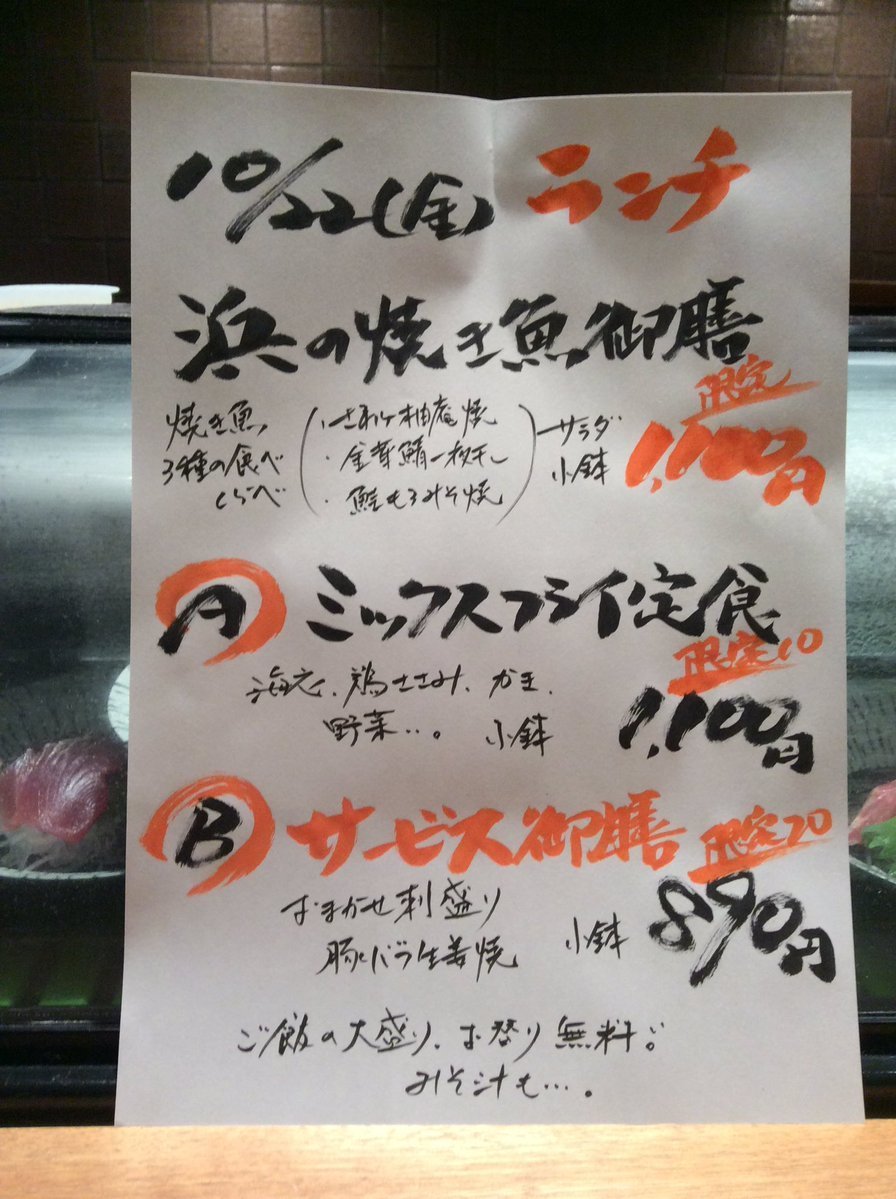 10/22(金) ランチ
浜の焼き魚御膳
限定
1,000円
焼き魚
3種の食べ
くらべ
・さわら柚庵焼
・金華鯖一枚干し
・鮭もろみそ焼
サラダ
小鉢
A ミックスフライ定食
限定10
海老、鶏ささみ、かき、
野菜…。 小鉢
1,100円
B サービス御膳 限定20
おまかせ刺盛り
豚バラ生姜焼 小鉢
890円
ご飯の大盛り、お替り無料!!
みそ汁も…。